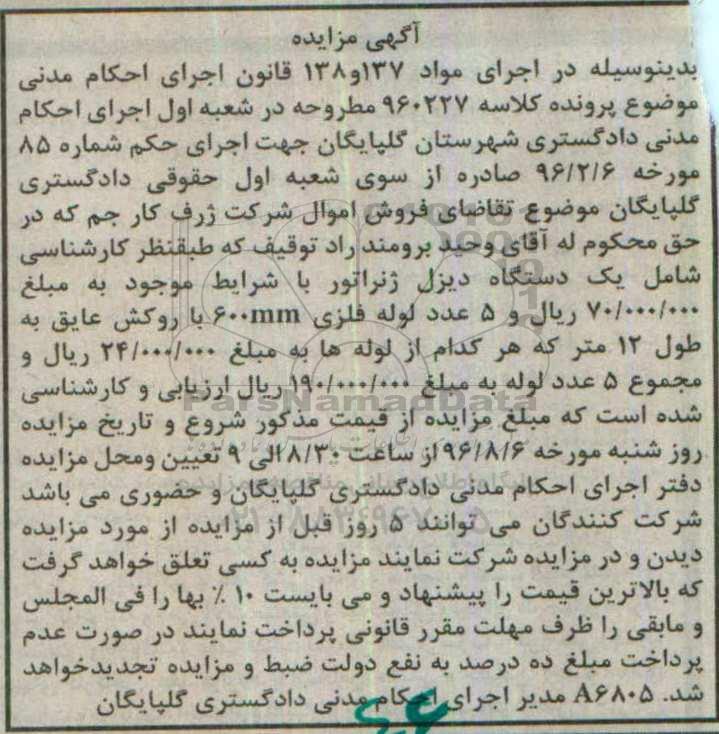 آگهی مزایده
بدینوسیله در اجرای مواد ۱۳۷و۱۳۸ قانون اجرای احکام مدنی
موضوع پرونده کلاسه ۹۶۰۲۲۷ مطروحه در شعبه اول اجرای احکام
مدنی دادگستری شهرستان گلپایگان جهت اجرای حکم شماره ۸۵
مورخه ۹۶/۲/۶ صادره از سوی شعبه اول حقوقی دادگستری
گلپایگان موضوع تقاضای فروش اموال شرکت ژرف کار جم که در
حق محکوم له آقای وحید برومند راد توقیف که طبقنظر کارشناسی
شامل یک دستگاه دیزل ژنراتور با شرایط موجود به مبلغ
۷۰/۰۰۰/۰۰۰ ریال و ۵ عدد لوله فلزی ۶۰۰mm با روکش عایق به
طول ۱۲ متر که هر کدام از لوله ها به مبلغ ۲۴/۰۰۰/۰۰۰ ریال و
مجموع ۵ عدد لوله به مبلغ ۱۹۰/۰۰۰/۰۰۰ ریال ارزیابی و کارشناسی
شده است که مبلغ مزایده از قیمت مذکور شروع و تاریخ مزایده
روز شنبه مورخه ۹۶/۸/۶ از ساعت ۸/۳۰الی ۹ تعیین ومحل مزایده
دفتر اجرای احکام مدنی دادگستری گلپایگان و حضوری می باشد
شرکت کنندگان می توانند ۵ روز قبل از مزایده از مورد مزایده
دیدن و در مزایده شرکت نمایند مزایده به کسی تعلق خواهد گرفت
که بالاترین قیمت را پیشنهاد و می بایست ۱۰ ٪ بها را فی المجلس
و مابقی را ظرف مهلت مقرر قانونی پرداخت نمایند در صورت عدم
پرداخت مبلغ ده درصد به نفع دولت ضبط و مزایده تجدیدخواهد
شد. A۶۸۰۵ مدیر اجرای احکام مدنی دادگستری گلپایگان
ParsNamadData